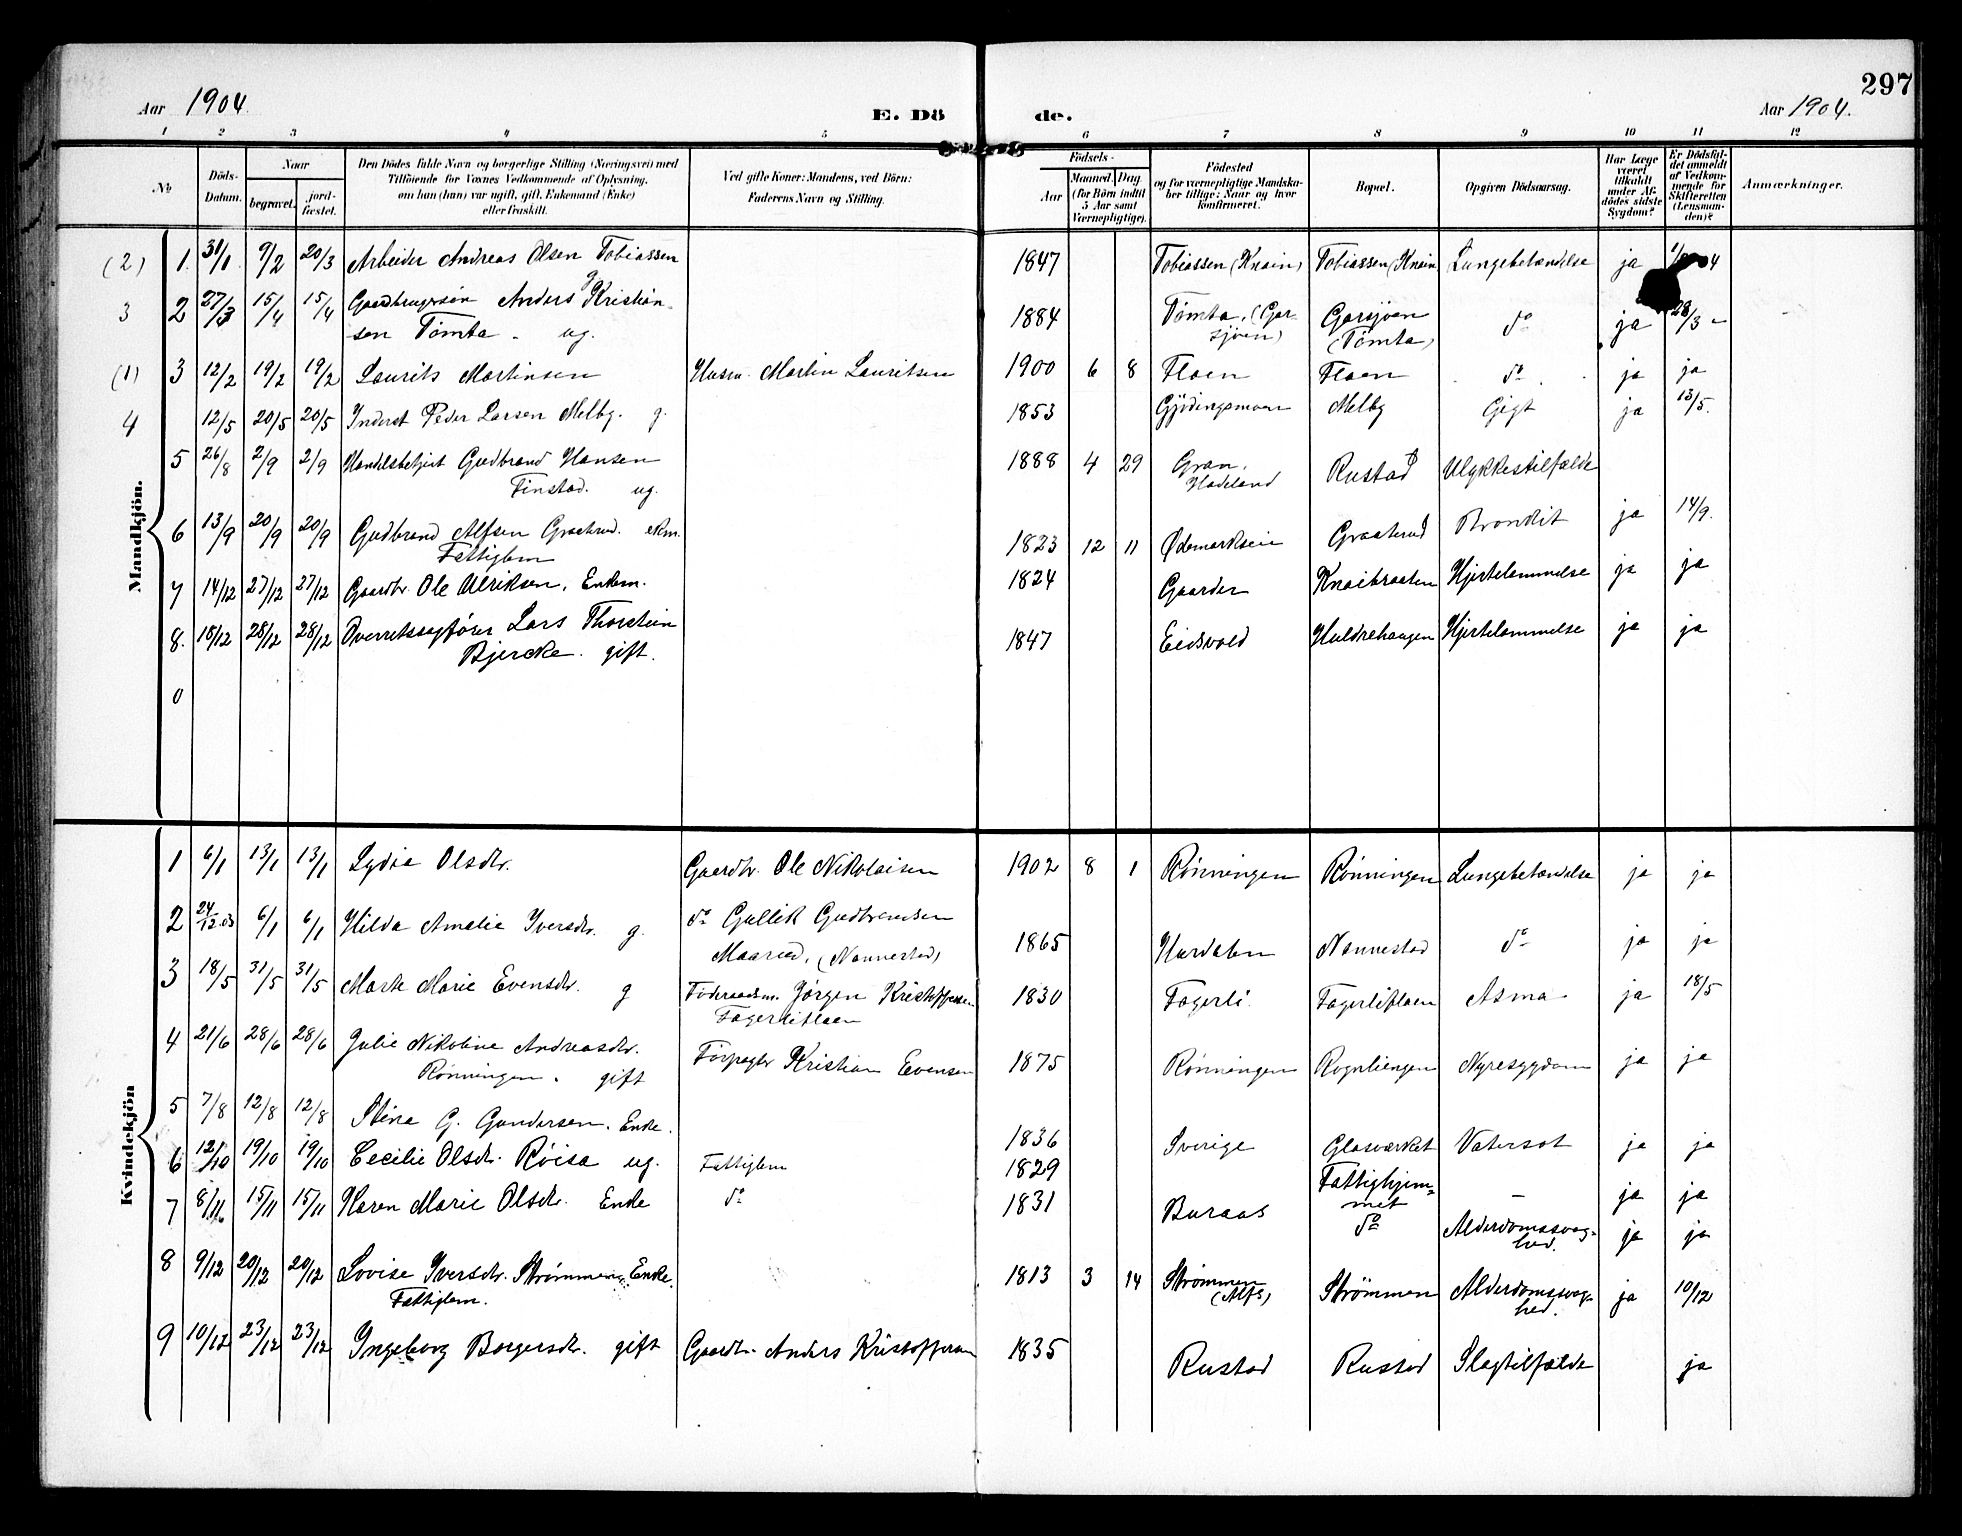 297
Aar 1904.
E. Dö
de.
Aar 1904.
1 2 3 4 5 6 7 8 9 10 11 12
№
Döds-
Datum.
Naar
begravet.
jord-
fæstet.
Den Dödes fulde Navn og borgerlige Stilling (Næringsvei) med
Tilföiende for Voxnes Vedkommende af Oplysning,
om han (hun) var ugift, gift, Enkemand (Enke)
eller fraskilt.
Ved gifte Koner: Mandens, ved Börn:
Faderens Navn og Stilling.
Födsels-
Aar
Maaned.
Dag
(for Börn indtil
5 Aar samt
Værnepligtige).
Födested
og for værnepligtige Mandska-
ber tillige: Naar og hvor
konfirmeret.
Bopæl.
Opgiven Dödsaarsag.
Har Læge
været
tilkaldt
under Af-
dödes sidste
Sygdom?
Er Dödsfal-
det anmeldt
af Vedkom-
mende for
Skifteretten
(Lensman-
den)?
Anmærkninger.
Mandkjön.
(2) 1. 31/1 9/2 20/3 Arbeider Andreas Olsen Tobiassen g 1847 Tobiassen (Knain) Tobiassen (Knain) Lungebetændelse ja
3 2 27/3 15/4 15/4 Gaardbrugersön Anders Kristian-
sen Tömta. ug. 1884 Tömta, (Gar-
sjöen) Garsjöen
(Tömta) do ja 28/3
(1) 3 12/2 19/2 19/2 Laurits Martinsen Husm. Martin Lauritsen 1900 6 8 Floen Floen do ja ja
4 12/5 20/5 20/5 Inderst Peder Larsen Melby. g. 1853 Gjödingsmoen Melby Gigt ja 13/5.
5 26/8 2/9 2/9 Handelsbetjent Gudbrand Hansen
Finstad. ug. 1888 4 29 Gran,
Hadeland Rustad Ulykkestilfælde
6 13/9 20/9 20/9 Gudbrand Alfsen Graaterud. ekm.
Fattiglem 1823 12 11 Ødemarkseie Graaterud Bronkit ja 14/9.
7 14/12 27/12 27/12 Gaardbr. Ole Ulriksen, Enkem. 1824 Gaarder Knaibraaten Hjertelammelse ja ja
8. 18/12 28/12 28/12 Overretssagförer Lars Thorstein
Bjercke. gift. 1847 Eidsvold Huldrehaugen Hjertelammelse ja ja
0
Kvindekjön
1 6/1 13/1 13/1 Lydia Olsdtr. Gaardbr. Ole Nikolaisen 1902 8 1 Rönningen Rönningen Lungebetændelse ja ja
2 24/12.03 6/1 6/1 Hilda Amalie Iversdtr. g. do Gullik Gudbrandsen
Maarud, (Nannestad) 1865 Hurdalen Nannestad do ja ja
3 18/5 31/5 31/5 Marte Marie Evensdtr. g Föderaadsm. Jörgen Kristoffersen
Fagerliflaen 1830 Fagerli Fagerliflaen Asma ja 18/5
4 21/6 28/6 28/6 Julie Nikoline Andreasdtr.
Rönningen. gift Forpagter Kristian Evensen 1875 Rönningen Rognliengen Nyresygdom ja ja
5 7/8 12/8 12/8 Stina G. Gundersen. Enke. 1836 Sverige Glasværket Vatersot ja ja
6 12/10 19/10 19/10 Cecilie Olsdtr. Röisa ug. Fattiglem 1829 Fattighjem-
met – ja ja
7 8/11 15/11 15/11 Karen Marie Olsdtr. Enke do 1831 Buraas do Alderdomssvag-
hed. ja ja
8 9/12 20/12 20/12 Lovise Iversdtr. Strömmen, Enke.
Fattiglem. 1813 3 14 Strömmen
(Alfs) Strömmen Alderdomssvag-
hed. ja 10/12
9 10/12 23/12 23/12 Ingeborg Borgersdtr. gift Gaardbr. Anders Kristoffersen 1835 Rustad Rustad Slagtilfælde ja